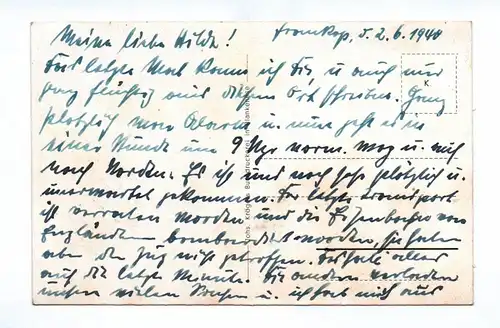 Meine liebe Hilde! Framkop, d. 2.6.1940
Das letzte Mal kann ich Dir, u auch nur
ganz flüchtig aus diesem Ort schreiben. Ganz
plötzlich war Alarm u. nun geht es in
einer Stunde um 9 Uhr vorm. weg u.
nach Norden. Es ist und noch sehr plötzlich u.
unerwartet gekommen. Der letzte Transport
ist verraten worden und die Eisenbahn von
Engländern bombardiert worden, sie haben
aber den Zug nicht getroffen. Deshalb alles
auf die letzte Minute. Die andern verladen
unsere vielen Sachen u. ich hab mich aus
K